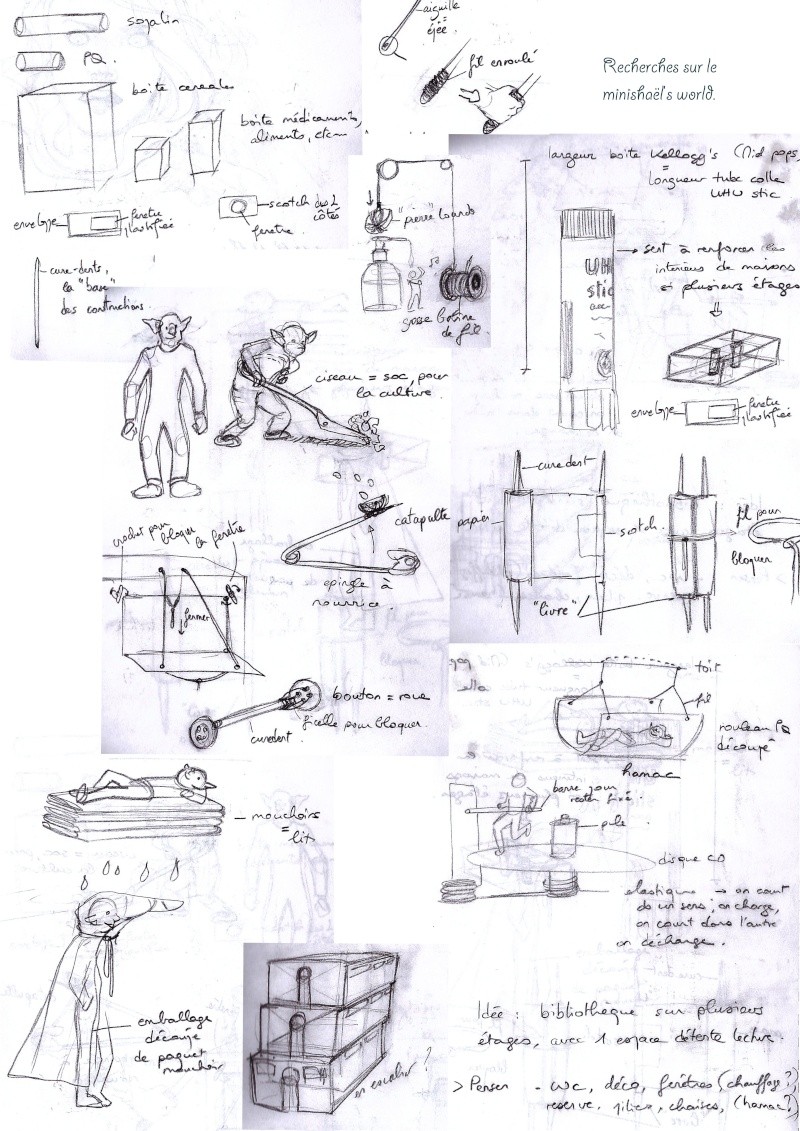 sopalin
PQ.
boîte cereales
boîte médicaments,
aliments, etc
aiguille
=
éjée
fil enroulé
Recherches sur le
minishaël's world.
enveloppe
fenetre
plastifiée
scotch des 2
côtés
fenetre.
"pierre" lourde
grosse bobine
de fil
cure-dents,
la "base"
des constructions.
largeur boîte Kellogg's (Mid pops)
=
longueur tube colle
UHU stic
UH
stic
sert à renforcer les
interieurs de maisons
à plusieurs étages
enveloppe
fenetre
plastifiée
ciseau = soc, pour
la culture.
catapulte
epingle à
nourrice.
crochet pour
bloquer la fenetre
fermer
bouton = roue
ficelle pour bloquer.
curedent
curedent
papier
scotch.
"livre"
fil pour
bloquer
toit
fil
rouleau PQ
découpé
hamac
mouchoirs
=
lit
barre pour
rester fixé.
pile
disque CD
elastique → on court
ds un sens; on charge,
on court dans l'autre
on décharge.
emballage
découpé
de paquet
mouchoir
en escalier ?
Idée : bibliothèque sur plusieurs
étages, avec 1 espace détente lecture.
> Penser - WC, déco, fenêtres, (chauffage?),
reserve, piliers, chaises, (hamac?)